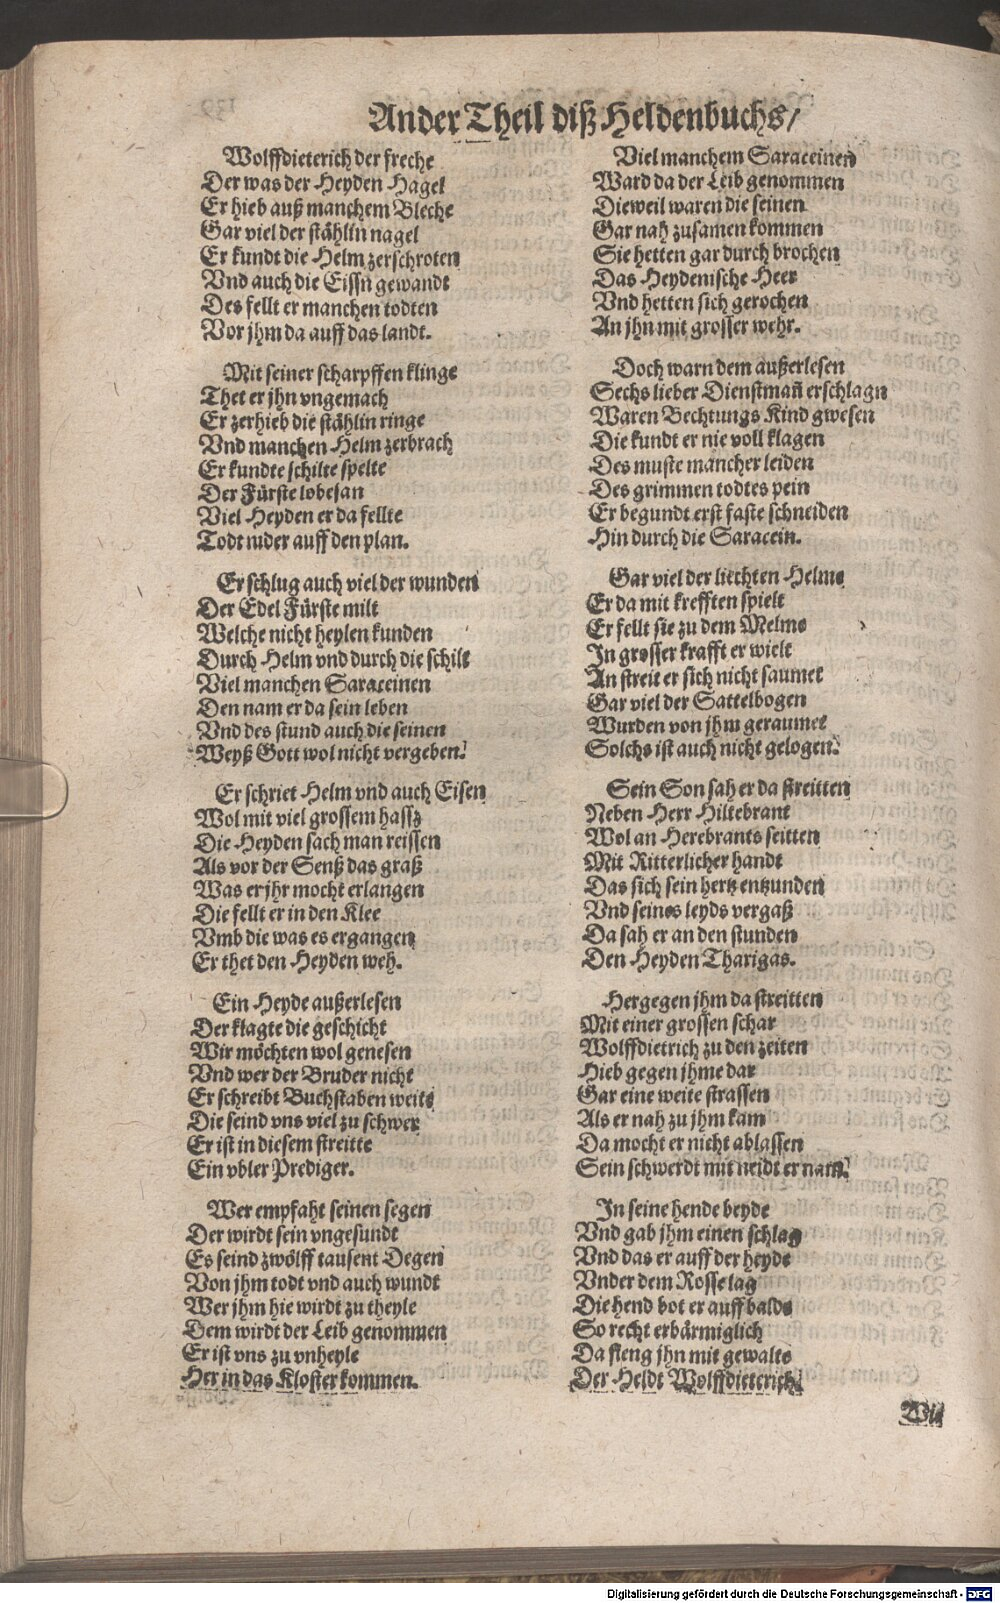 Ander Theil diß Heldenbuchs/
Wolffdieterich der freche
Der was der Heyden Hagel
Er hieb auß manchem Bleche
Gar viel der stählin nagel
Er kundt die Helm zerschroten
Vnd auch die Eissn gewandt
Des fellt er manchen todten
Vor jhm da auff das landt.
Mit seiner scharpffen klinge
Thet er jhn vngemach
Er zerhieb die stählin ringe
Vnd manchen Helm zerbrach
Er kundte schilte spelte
Der Fürste lobesan
Viel Heyden er da fellte
Todt nider auff den plan.
Er schlug auch viel der wunden
Der Edel Fürste milt
Welche nicht heylen kunden
Durch Helm vnd durch die schilt
Viel manchen Saraceinen
Den nam er da sein leben
Vnd des stund auch die seinen
Weyß Gott wol nicht vergeben.
Er schriet Helm vnd auch Eisen
Wol mit viel grossem hassz
Die Heyden sach man reissen
Als vor der Senß das graß
Was er jhr mocht erlangen
Die fellt er in den Klee
Vmb die was es ergangen
Er thet den Heyden weh.
Ein Heyde außerlesen
Der klagte die geschicht
Wir möchten wol genesen
Vnd wer der Bruder nicht
Er schreibt Buchstaben weite
Die seind vns viel zu schwer
Er ist in diesem streitte
Ein vbler Prediger.
Wer empfaht seinen segen
Der wirdt sein vngesundt
Es seind zwölff tausent Degen
Von jhm todt vnd auch wundt
Wer jhm hie wirdt zu theyle
Dem wirdt der Leib genommen
Er ist vns zu vnheyle
Her in das Kloster kommen.
Viel manchem Saraceinen
Ward da der Leib genommen
Dieweil waren die seinen
Gar nah zusamen kommen
Sie hetten gar durch brochen
Das Heydenische Heer
Vnd hetten sich gerochen
An jhn mit grosser wehr.
Doch warn dem außerlesen
Sechs lieber Dienstmañ erschlagn
Waren Bechtungs Kind gwesen
Die kundt er nie voll klagen
Des muste mancher leiden
Des grimmen todtes pein
Er begundt erst faste schneiden
Hin durch die Saracein.
Gar viel der liechten Helme
Er da mit krefften spielt
Er fellt sie zu dem Melme
In grosser krafft er wielt
An streit er sich nicht saumet
Gar viel der Sattelbogen
Wurden von jhm geraumet
Solchs ist auch nicht gelogen.
Sein Son sah er da streitten
Neben Herr Hiltebrant
Wol an Herebrants seitten
Mit Ritterlicher handt
Das sich sein hertz entzunden
Vnd seines leyds vergaß
Da sah er an den stunden
Den Heyden Tharigas.
Hergegen jhm da streitten
Mit einer grossen schar
Wolffdietrich zu den zeiten
Hieb gegen jhme dar
Gar eine weite strassen
Als er nah zu jhm kam
Da mocht er nicht ablassen
Sein schwerdt mit neidt er nam.
In seine hende beyde
Vnd gab jhm einen schlag
Vnd das er auff der heyde
Vnder dem Rosse lag
Die hend bot er auff balde
So recht erbärmiglich
Da fieng jhn mit gewalte
Der Heldt Wolffdieterich.
Wie
Digitalisierung gefördert durch die Deutsche Forschungsgemeinschaft - DFG